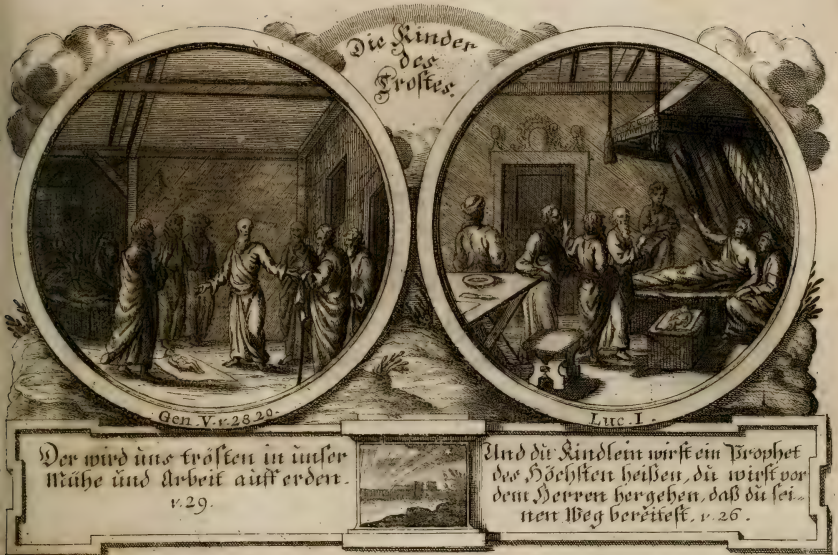 Die Kinder
des
Trostes.
Gen. V. v. 28. 29.
Luc. I.
Der wird uns trösten in unser
Mühe und Arbeit auff erden.
v. 29.
Und du Kindlein wirst ein Prophet
des Höchsten heißen, du wirst vor
dem Herren hergehen, daß du sei-
nen Weg bereitest. v. 26.